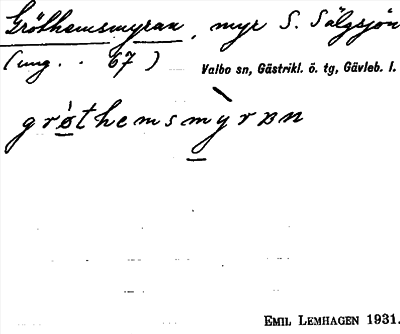 Gröthemsmyran, myr S. Sälgsjön
(ung. . 67)
Valbo sn, Gästrikl. ö. tg, Gävleb. l.
grøthemsmỳrɐn
EMIL LEMHAGEN 1931.